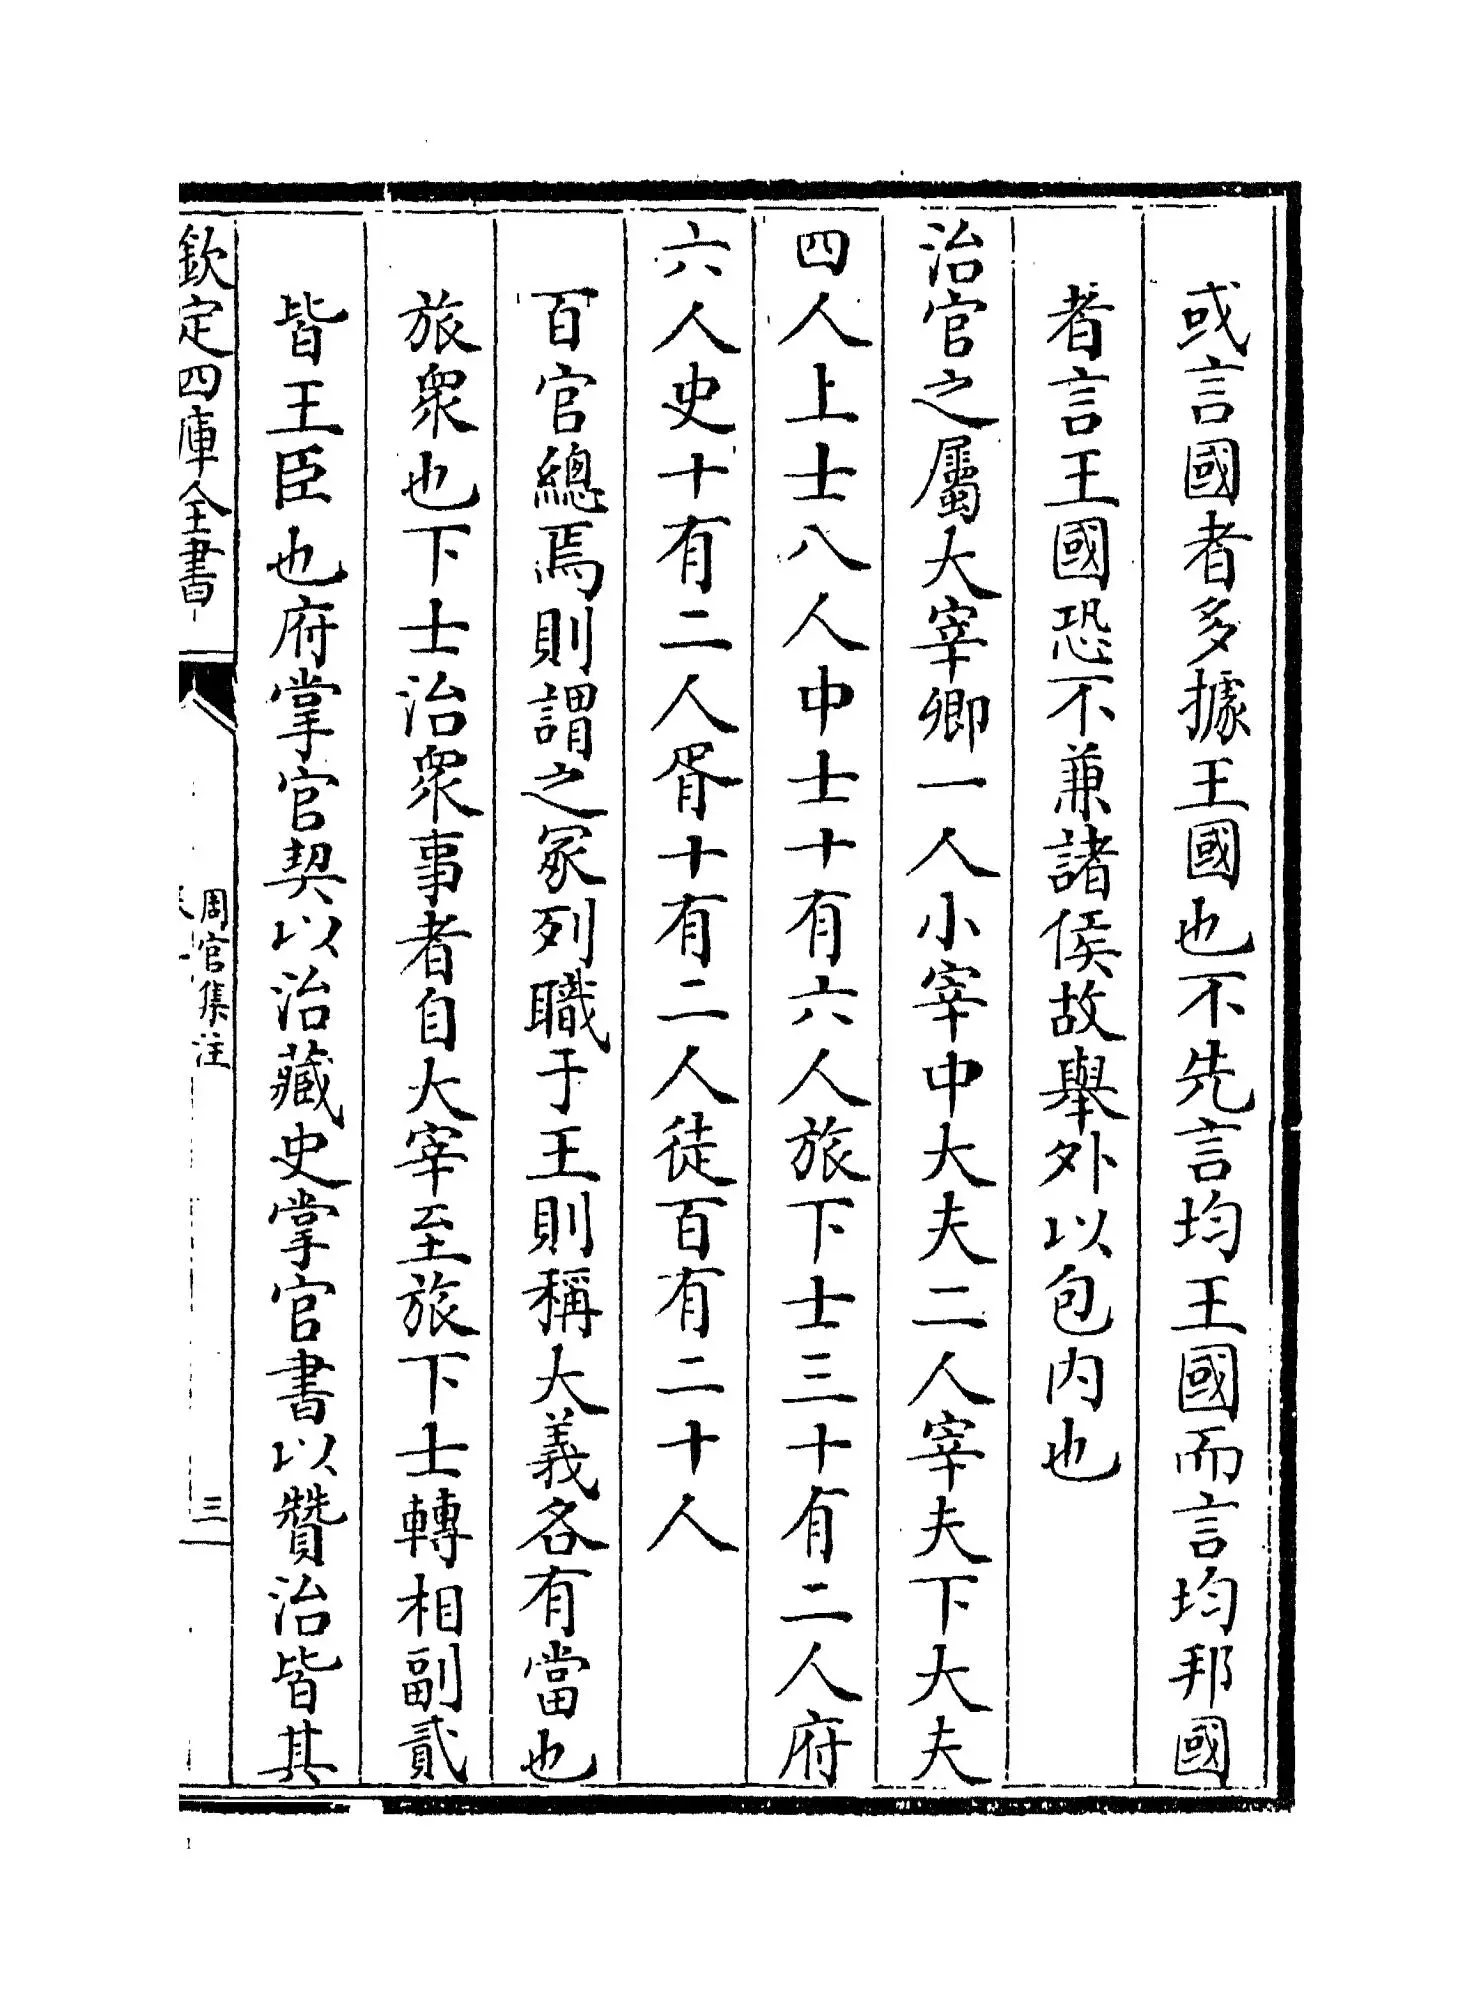 或言國者多據王國也不先言均王國而言均邦國
者言王國恐不兼諸侯故舉外以包内也
治官之屬大宰卿一人小宰中大夫二人宰夫下大夫
四人上士八人中士十有六人旅下士三十有二人府
六人史十有二人胥十有二人徒百有二十人
百官總焉則謂之冢列職于王則稱大義各有當也
旅衆也下士治衆事者自大宰至旅下士轉相副貳
皆王臣也府掌官契以治藏史掌官書以贊治皆其
欽定四庫全書
周官集注
三